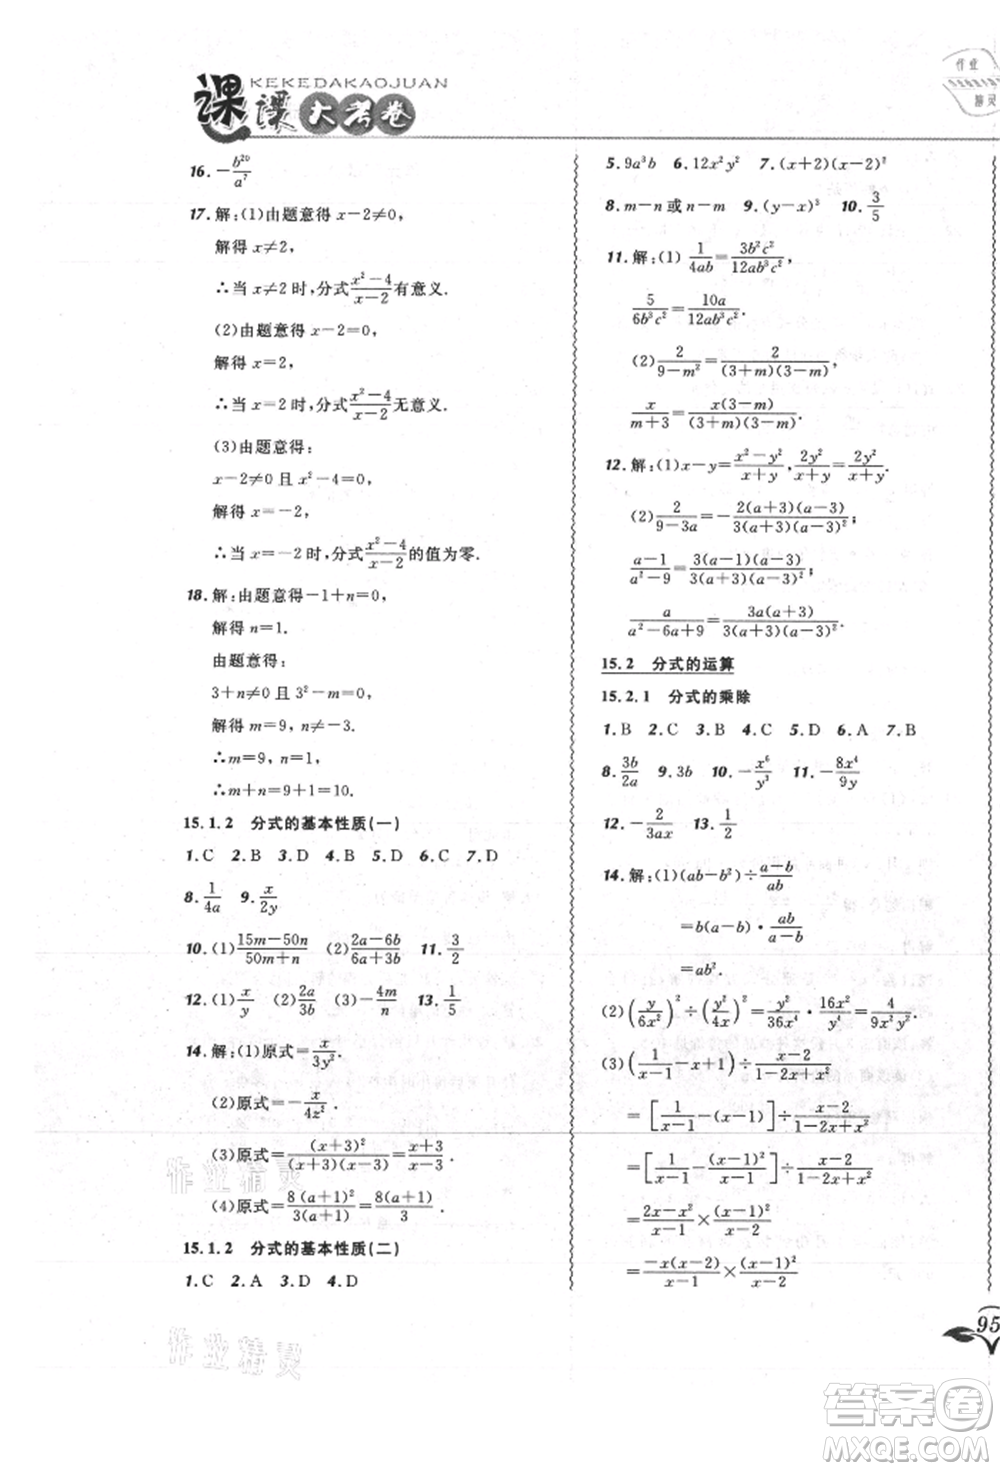 KEKEDAKAOJUAN
课课大考卷
作业
精灵
16. -b²⁰/a⁷
17. 解:(1)由题意得 x-2≠0,
解得 x≠2,
∴当 x≠2 时,分式(x²-4)/(x-2)有意义.
(2)由题意得 x-2=0,
解得 x=2,
∴当 x=2 时,分式(x²-4)/(x-2)无意义.
(3)由题意得:
x-2≠0 且 x²-4=0,
解得 x=-2,
∴当 x=-2 时,分式(x²-4)/(x-2)的值为零.
18. 解:由题意得-1+n=0,
解得 n=1.
由题意得:
3+n≠0 且 3²-m=0,
解得 m=9,n≠-3.
∴m=9,n=1,
∴m+n=9+1=10.
15.1.2 分式的基本性质(一)
1. C 2. B 3. D 4. B 5. D 6. C 7. D
8. 1/(4a) 9. x/(2y)
10. (1)(15m-50n)/(50m+n) (2)(2a-6b)/(6a+3b) 11. 3/2
12. (1)x/y (2)2a/(3b) (3)-4/n 13. 1/5
14. 解:(1)原式=x/(3y²).
(2)原式=-x/(4z²).
(3)原式=(x+3)²/((x+3)(x-3))=(x+3)/(x-3).
(4)原式=8(a+1)²/(3(a+1))=8(a+1)/3.
15.1.2 分式的基本性质(二)
1. C 2. A 3. D 4. D
5. 9a³b 6. 12x²y² 7. (x+2)(x-2)²
8. m-n 或 n-m 9. (y-x)³ 10. 3/5
11. 解:(1) 1/(4ab)=3b²c²/(12ab³c²),
5/(6b³c²)=10a/(12ab³c²).
(2)2/(9-m²)=2/((3+m)(3-m)),
x/(m+3)=x(3-m)/((3+m)(3-m)).
12. 解:(1)x-y=(x²-y²)/(x+y),2y²/(x+y)=2y²/(x+y).
(2)2/(9-3a)=-2(a+3)(a-3)/(3(a+3)(a-3)²),
(a-1)/(a²-9)=3(a-1)(a-3)/(3(a+3)(a-3)²),
a/(a²-6a+9)=3a(a+3)/(3(a+3)(a-3)²).
15.2 分式的运算
15.2.1 分式的乘除
1. B 2. C 3. B 4. C 5. D 6. A 7. B
8. 3b/(2a) 9. 3b 10. -x⁶/y³ 11. -8x⁴/(9y)
12. -2/(3ax) 13. 1/2
14. 解:(1)(ab-b²)÷(a-b)/(ab)
=b(a-b)·ab/(a-b)
=ab².
(2)(y/(6x²))²÷(y²/(4x))²=y²/(36x⁴)·16x²/y⁴=4/(9x²y²).
(3)(1/(x-1)-x+1)÷(x-2)/(1-2x+x²)
=[1/(x-1)-(x-1)]÷(x-2)/(1-2x+x²)
=[1/(x-1)-(x-1)²/(x-1)]÷(x-2)/(1-2x+x²)
=(2x-x²)/(x-1)×(x-1)²/(x-2)
=-x(x-2)/(x-1)×(x-1)²/(x-2)
95
作业精灵
作业精灵
答案圈
MXQE.COM